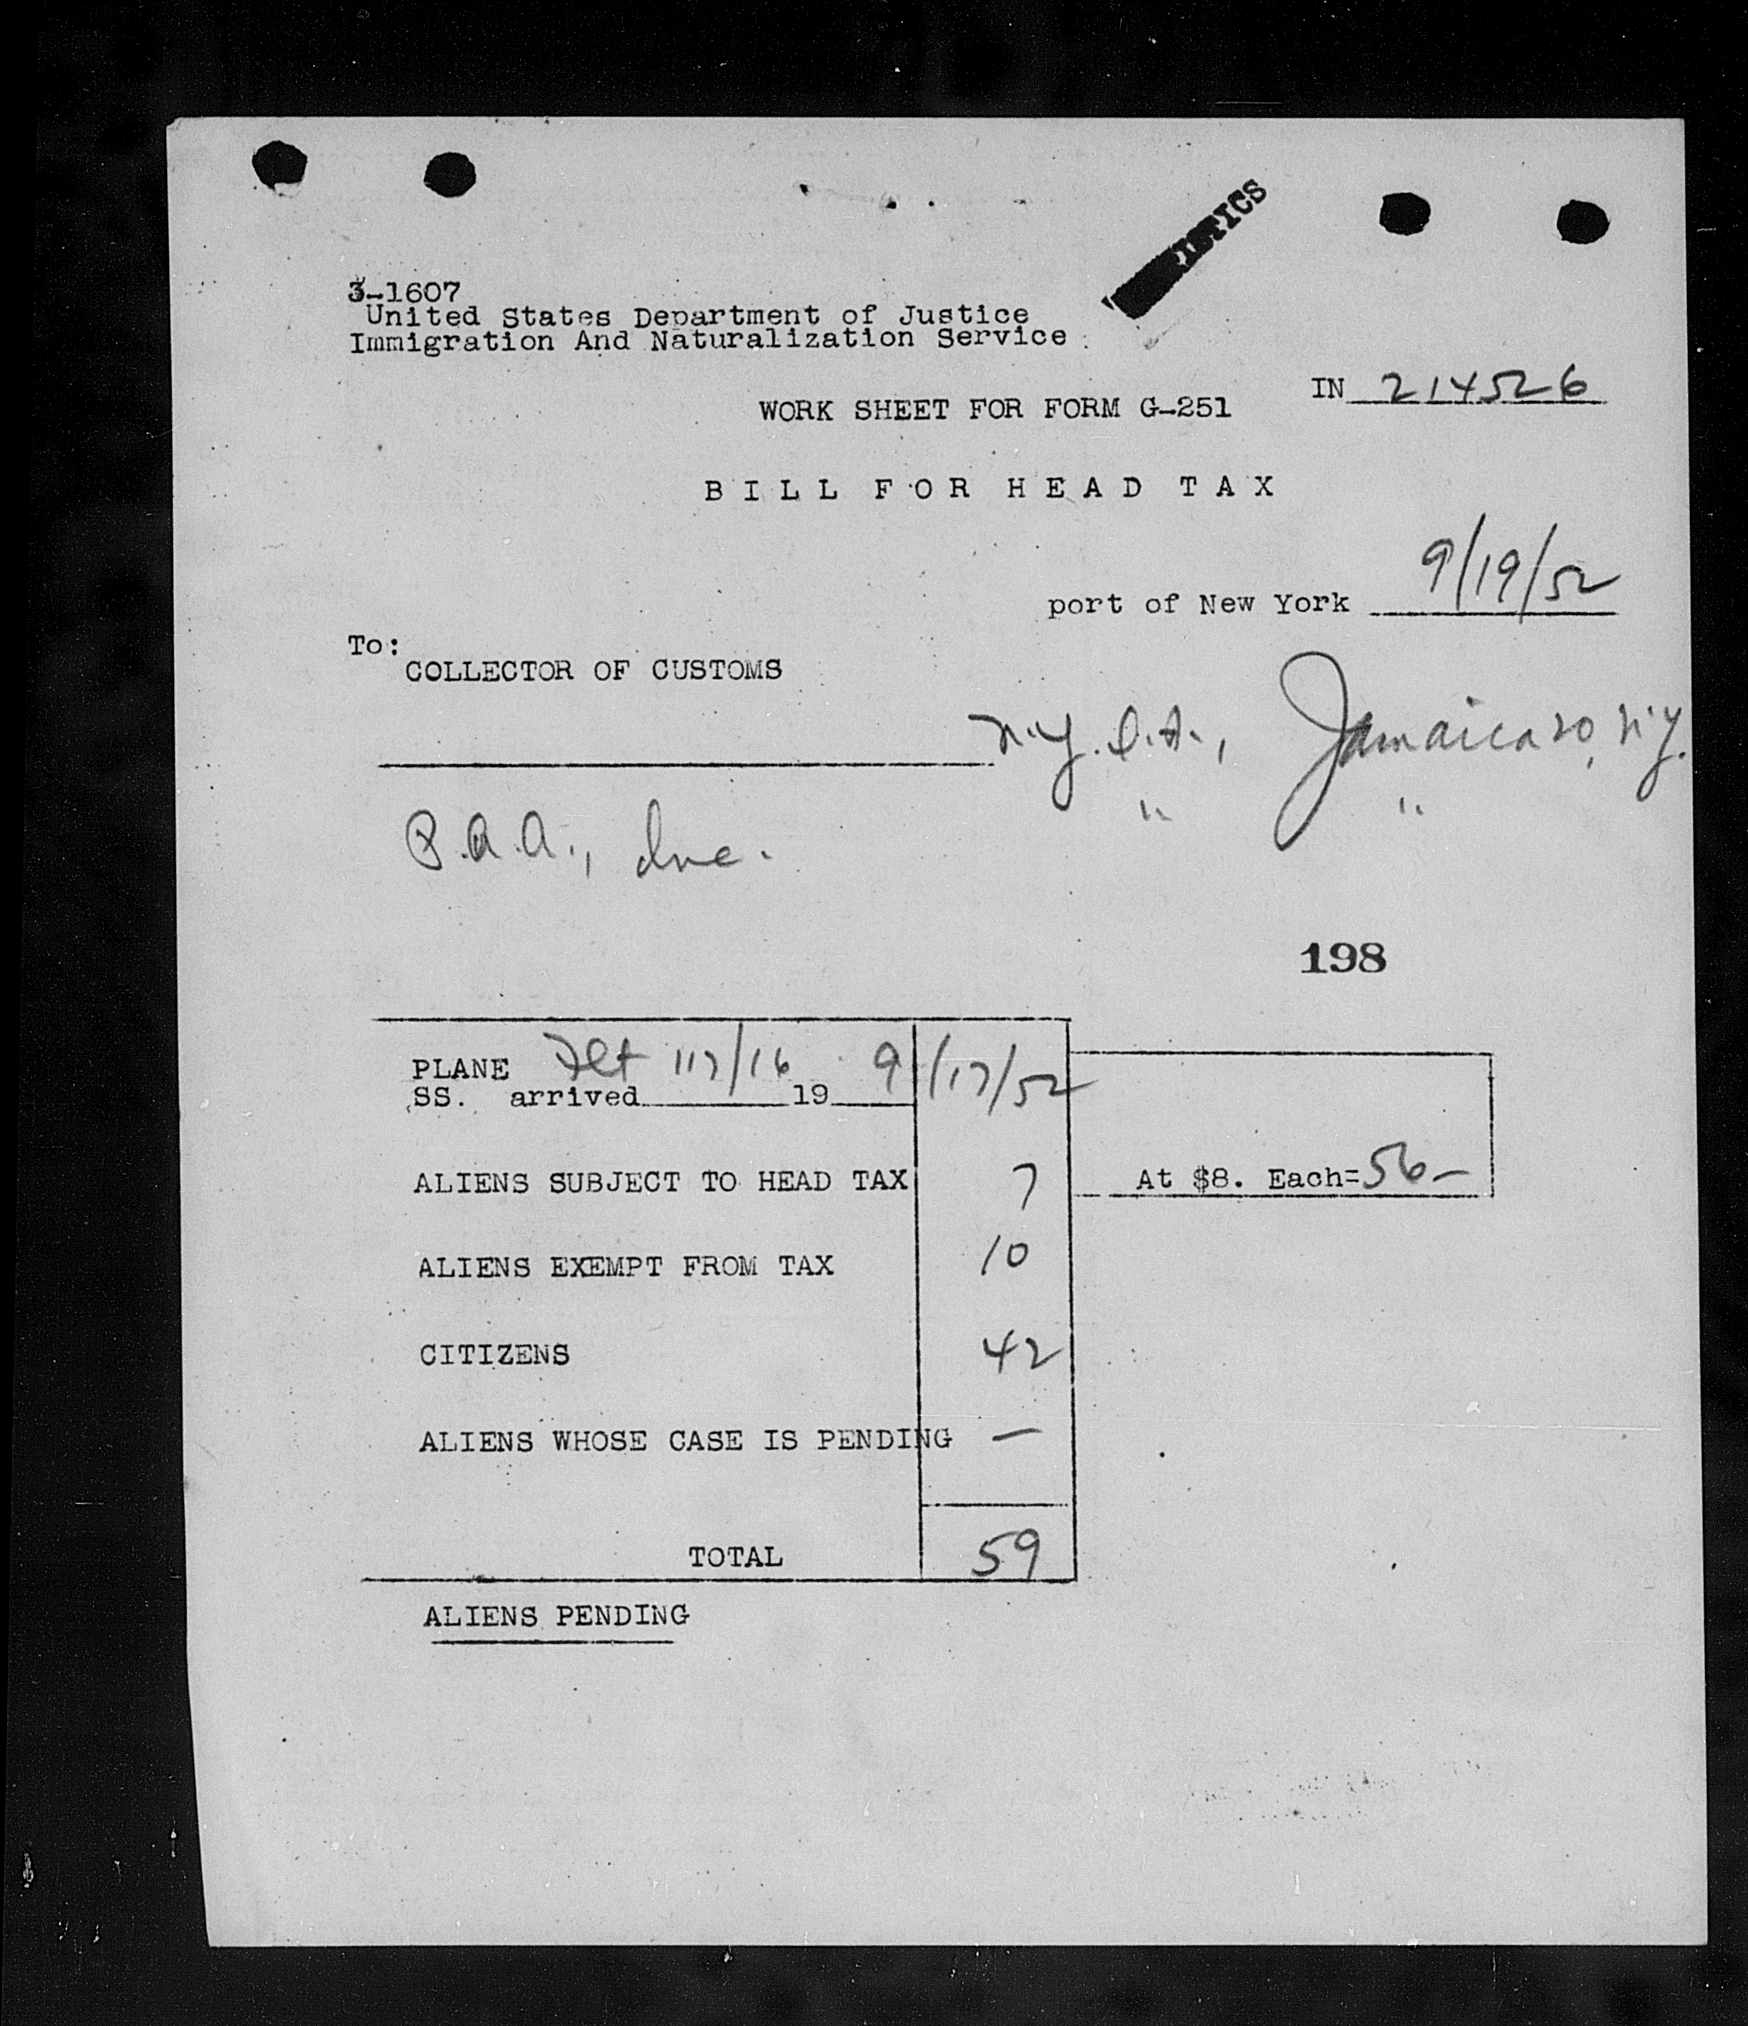 ISTICS
3-1607
United States Department of Justice
Immigration And Naturalization Service
IN 214526
WORK SHEET FOR FORM G-251
BILL FOR HEAD TAX
9/19/52
port of New York
To:
COLLECTOR OF CUSTOMS
N.Y. I.A., Jamaica 20, N.Y.
" "
P.A.A., Inc.
198
PLANE Flt 117/16 9/17/52
SS. arrived 19
ALIENS SUBJECT TO HEAD TAX 7 At $8. Each=56-
ALIENS EXEMPT FROM TAX 10
CITIZENS 42
ALIENS WHOSE CASE IS PENDING -
TOTAL 59
ALIENS PENDING